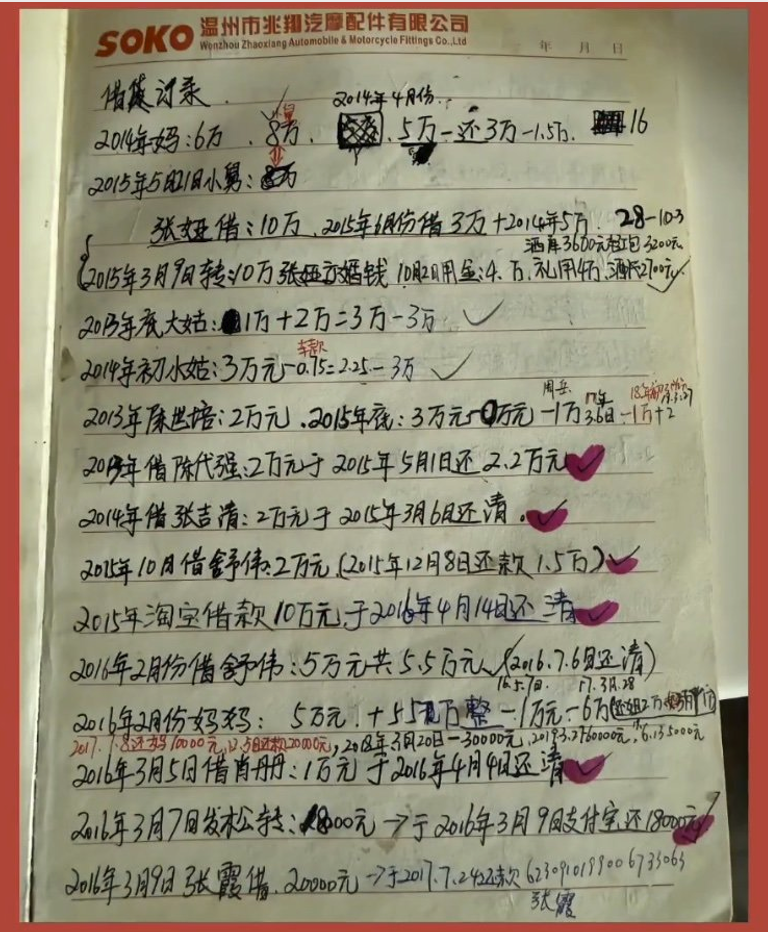 SOKO 温州市兆翔汽摩配件有限公司
Wenzhou Zhaoxiang Automobile & Motorcycle Fittings Co.,Ltd
年 月 日
借款记录
2014年4月份
2014年妈:6万、8万、5万-还3万-1.5万. 16
2015年5月21日小舅:
张娅借:10万、2015年6月份借3万+2014年5万. 28-10.3
酒席3600元 红包3200元
2015年3月9日转:10万张娅 婚钱 10月2日用金:4.万.礼用4万.
2013年底大姑:1万+2万=3万-3万
车款
2014年初小姑:3万元-0.75=2.25-3万
2013年陈世培:2万元.2015年底:3万元 万元-1万 -1万+2
2013年借陈代强:2万元于2015年5月1日还2.2万元
2014年借张吉清:2万元于2015年3月6日还清.
2015年10月借舒伟:2万元.(2015年12月8日还款1.5万)
2015年淘宝借款10万元于2016年4月14日还清
2016年2月份借舒伟:5万元共5.5万元(2016.7.6日还清)
16.5.7日. 17.3月.28
2016年2月份妈妈: 5万元.+5 万整-1万元-6万
2017.7.8还妈10000元, 还款20000元, 2018年3月20日-30000元.
2016年3月5日借肖丹丹:1万元于2016年4月4日还清
2016年3月7日发松转:18000元→于2016年3月9日支付宝还18000元
2016年3月9日张霞借.20000元→于2017.7.24还款 6230910199006733063
张霞